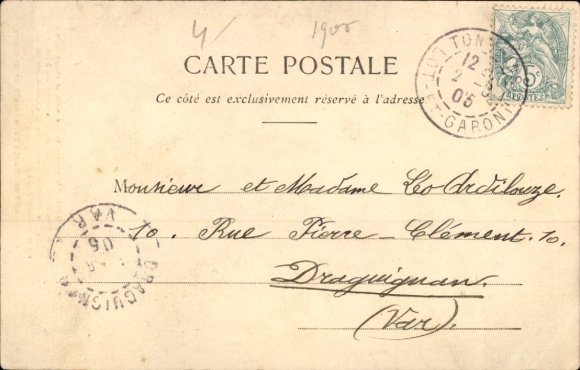 4/ 1905
CARTE POSTALE
Ce côté est exclusivement réservé à l'adresse
TONN
12
2
05
LOT-ET-GARONNE
5c
POSTES
Monsieur et Madame Léo Ardilouze.
10. Rue Pierre-Clément. 10.
Draguignan.
(Var).
DRAGUIGNAN
05
VAR